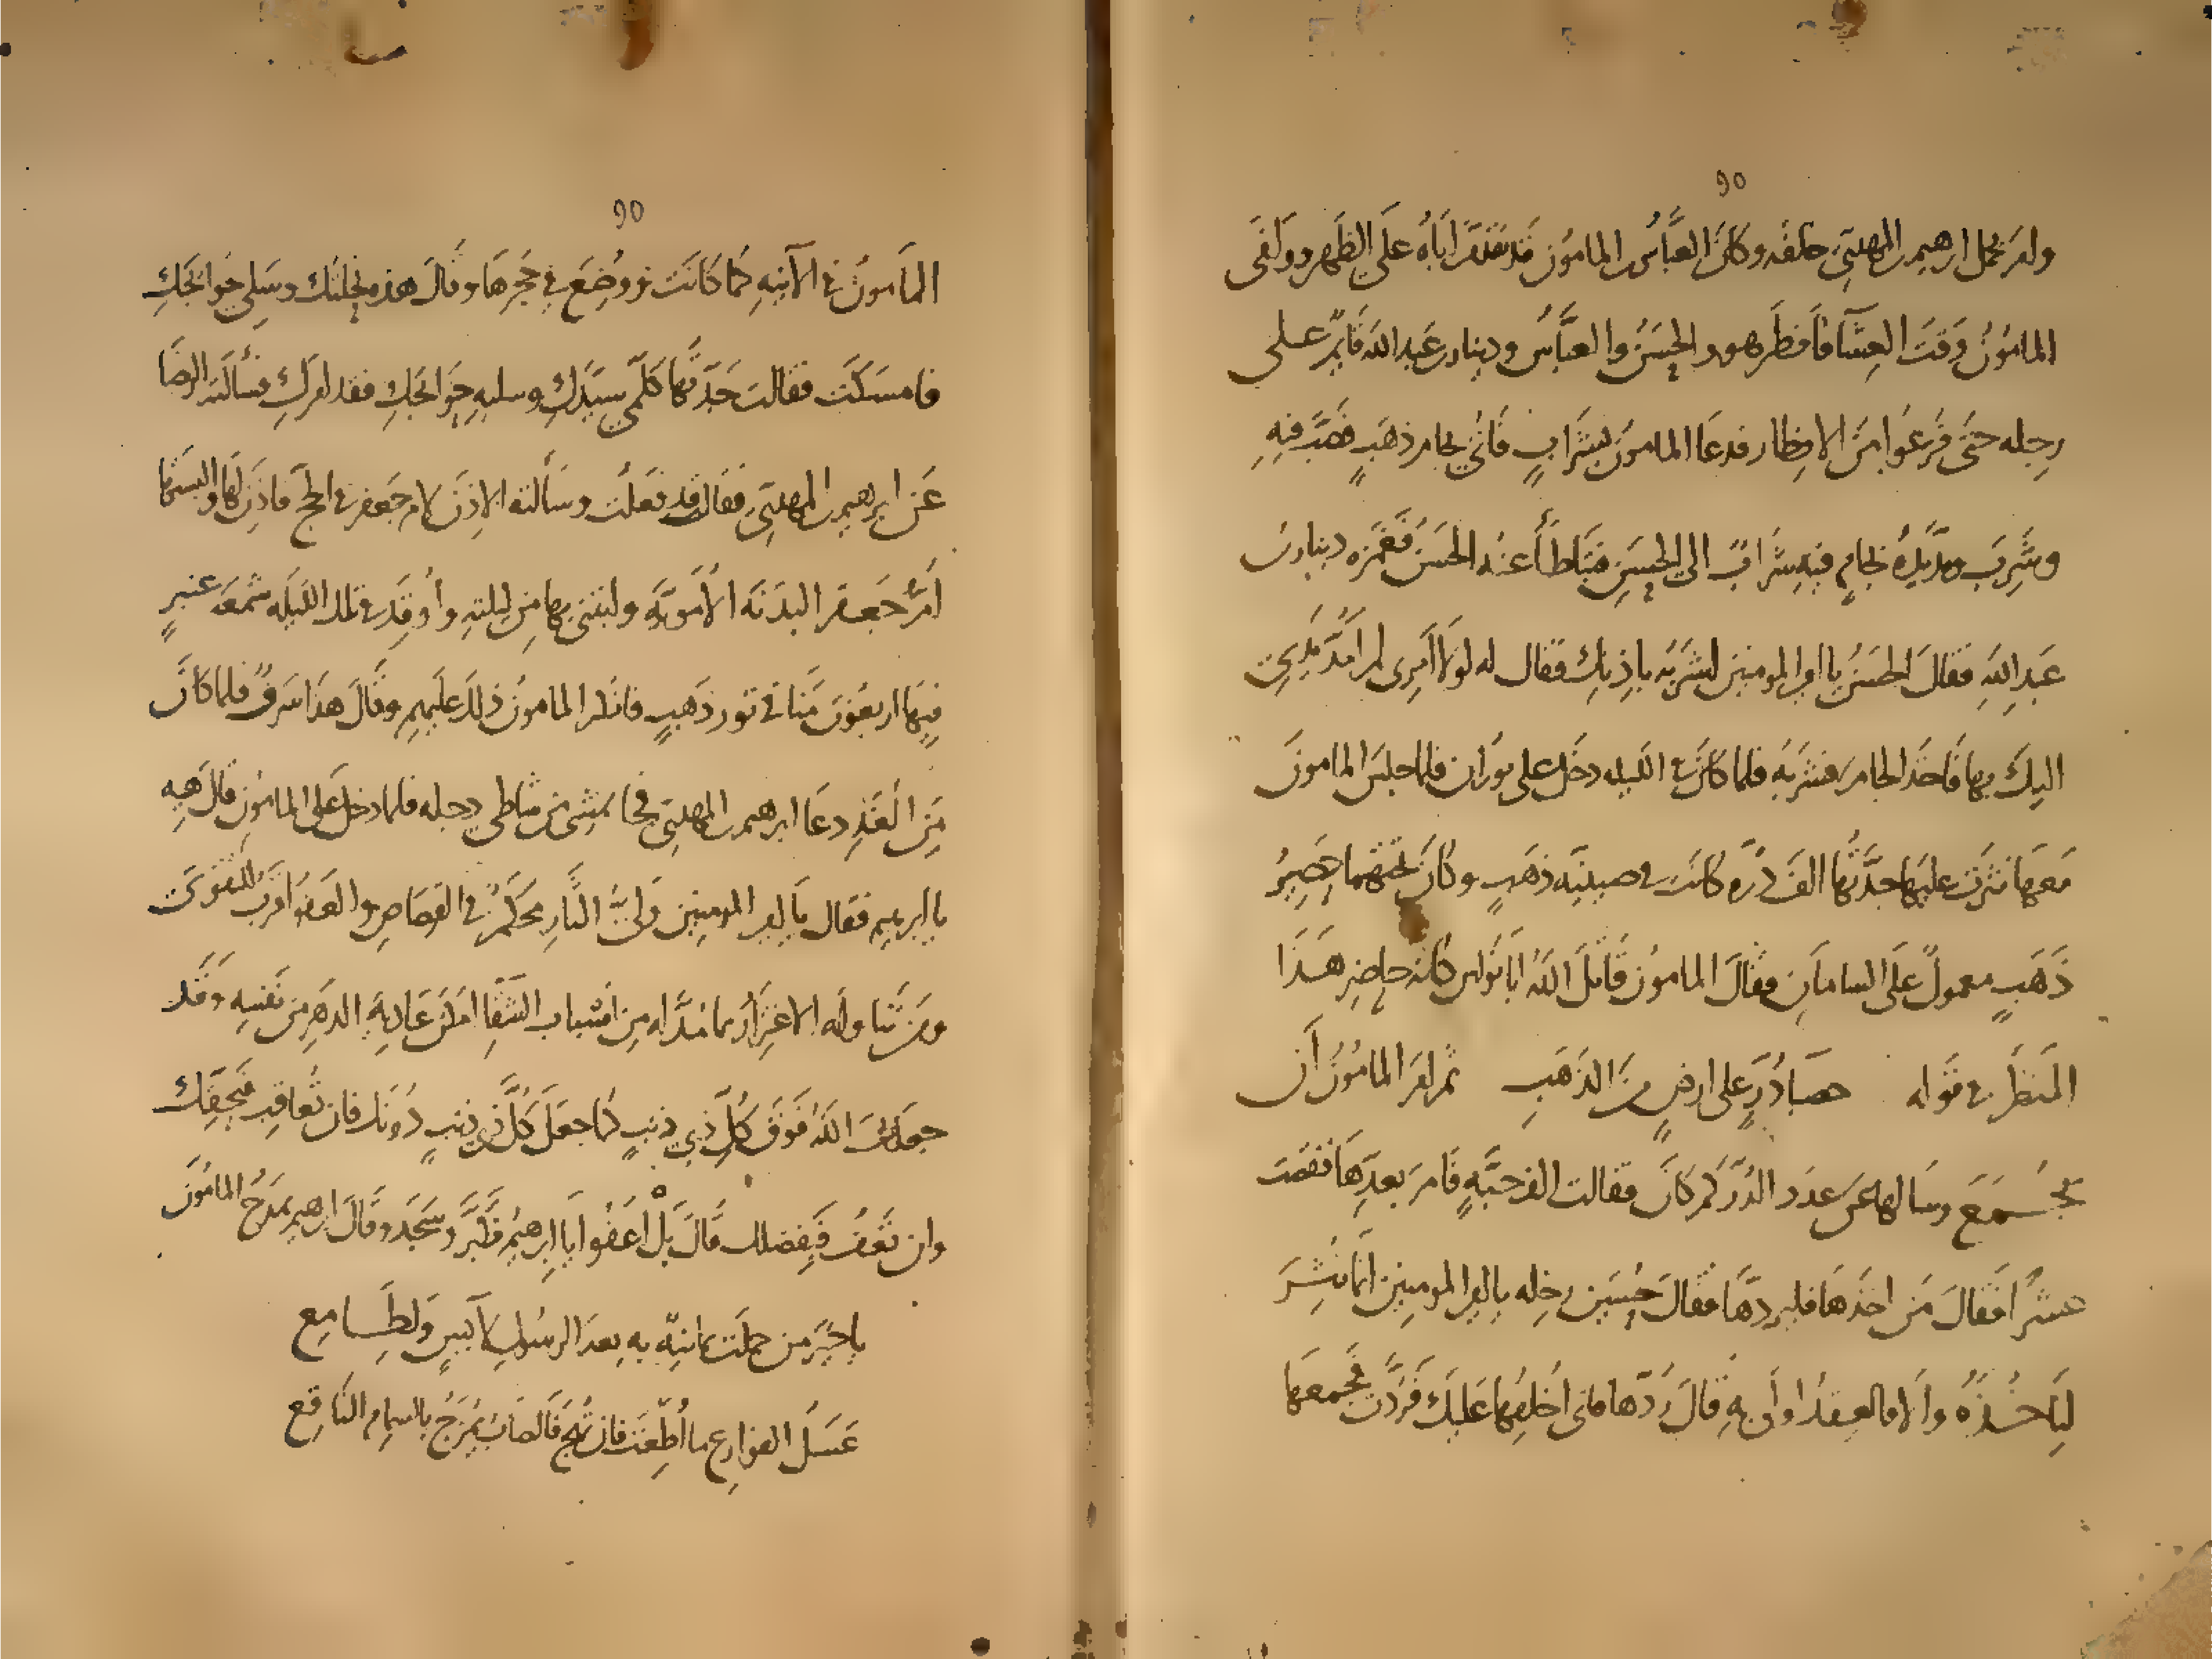 ٩٥
ولم يحمل ابرهيم بن المهدي خلفه وكان العباس بن المامون قد تقدم اباه على الظهر ووافى
المامون وقت العشآ فافطر هو والحسن والعباس ودينار بن عبد الله قايم على
رجله حتى فرغوا من الافطار فدعا المامون بشراب فاتى بجام ذهب فصب فيه
وشرب ومد يده بجام فيه شراب الى الحسن فتباطأ عنه الحسن فغمزه دينار بن
عبد الله فقال الحسن يا امير المومنين اشربه باذنك فقال له لولا امرى لم امدد يدى
اليك بها فاخذ الجام فشربه فلما كان في الليله دخل على بوران فلما جلس المامون
معها نثرت عليها جدتها الف دره كانت في صينيه ذهب وكان تحتهما حصير
ذهب معمول على السامان فقال المامون قاتل الله ابا نواس كانه حاضر هذا
المنظر في قواه حصبا در على ارض من الذهب ثم امر المامون أن
تجمع وسالها عن عدد الدرر كم كان فقالت الف حبه فامر بعدها فنقصت
عشرا فقال من اخذها فليردها فقال حسين رجله يا امير المومنين انما نثر
لناخذه والا ما العقد اولى به قال ردها فاني اخلفها عليك فردت فجمعها
٩٥
المامون في الآنيه كما كانت ووضع في حجرها وقال هذه نحلتك وسلي حوائجك
فامسكت فقالت جدتها كلمي سيدك وسليه حوائجك فقد امرك فسألته الرضا
عن ابرهيم بن المهدي فقال قد فعلت وسألته الاذن لام جعفر في الحج فاذن لها والبستها
ام جعفر البدنه الأمويه وابتنى بها من ليلته وأوقد في تلك الليله شمعة عنبر
فيها اربعون منا في تور ذهب فانكر المامون ذلك عليهم وقال هذا سرف فلما كان
من الغد دعا ابرهيم بن المهدي فجا يمشي من شاطي دجله فلما دخل على المامون قال هيه
يا ابرهيم فقال يا امير المومنين ولي الثار محكم في القصاص والعفو اقرب للتقوى
ومن تناوله الاغترار بما مد له من اسباب الشقا امكن عادية الدهر من نفسه وقد
جعلك الله فوق كل ذي ذنب كما جعل كل ذي ذنب دونك فان تعاقب فبحقك
وان تعف فبفضلك قال بل أعفوا يا ابرهيم فكبر وسجد وقال ابرهيم يمدح المامون
يا خير من حملت يمانيه به بعد الرسول لآيس ولطامع
عسل الفوارع ما اطعت فان تهج فالصاب يمزج بالسمام الناقع